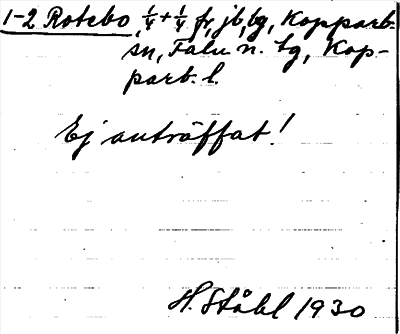 1-2 Rotebo, 1/4 + 1/4 fr, jb, bg, Kopparb.
sn, Falu n. tg, Kop-
parb. l.
Ej anträffat!
H. Ståhl 1930